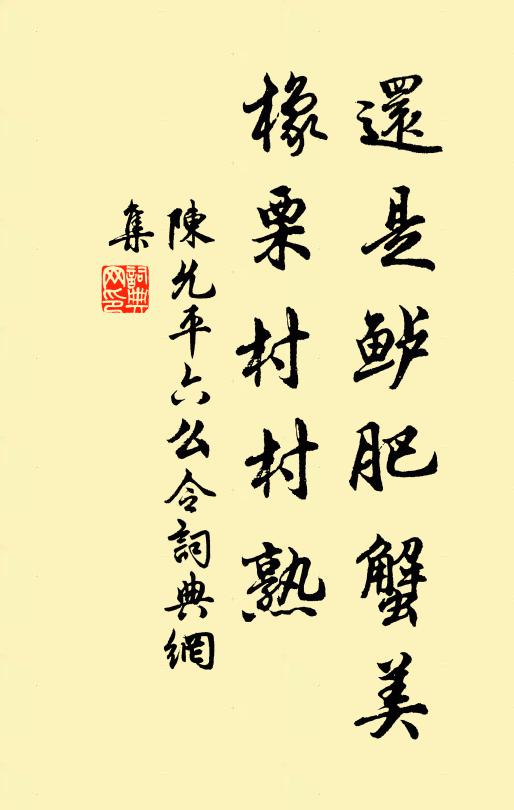 還是鲈肥蟹美
橡栗村村熟
陳允平六么令詞典網
集
詞典
网印